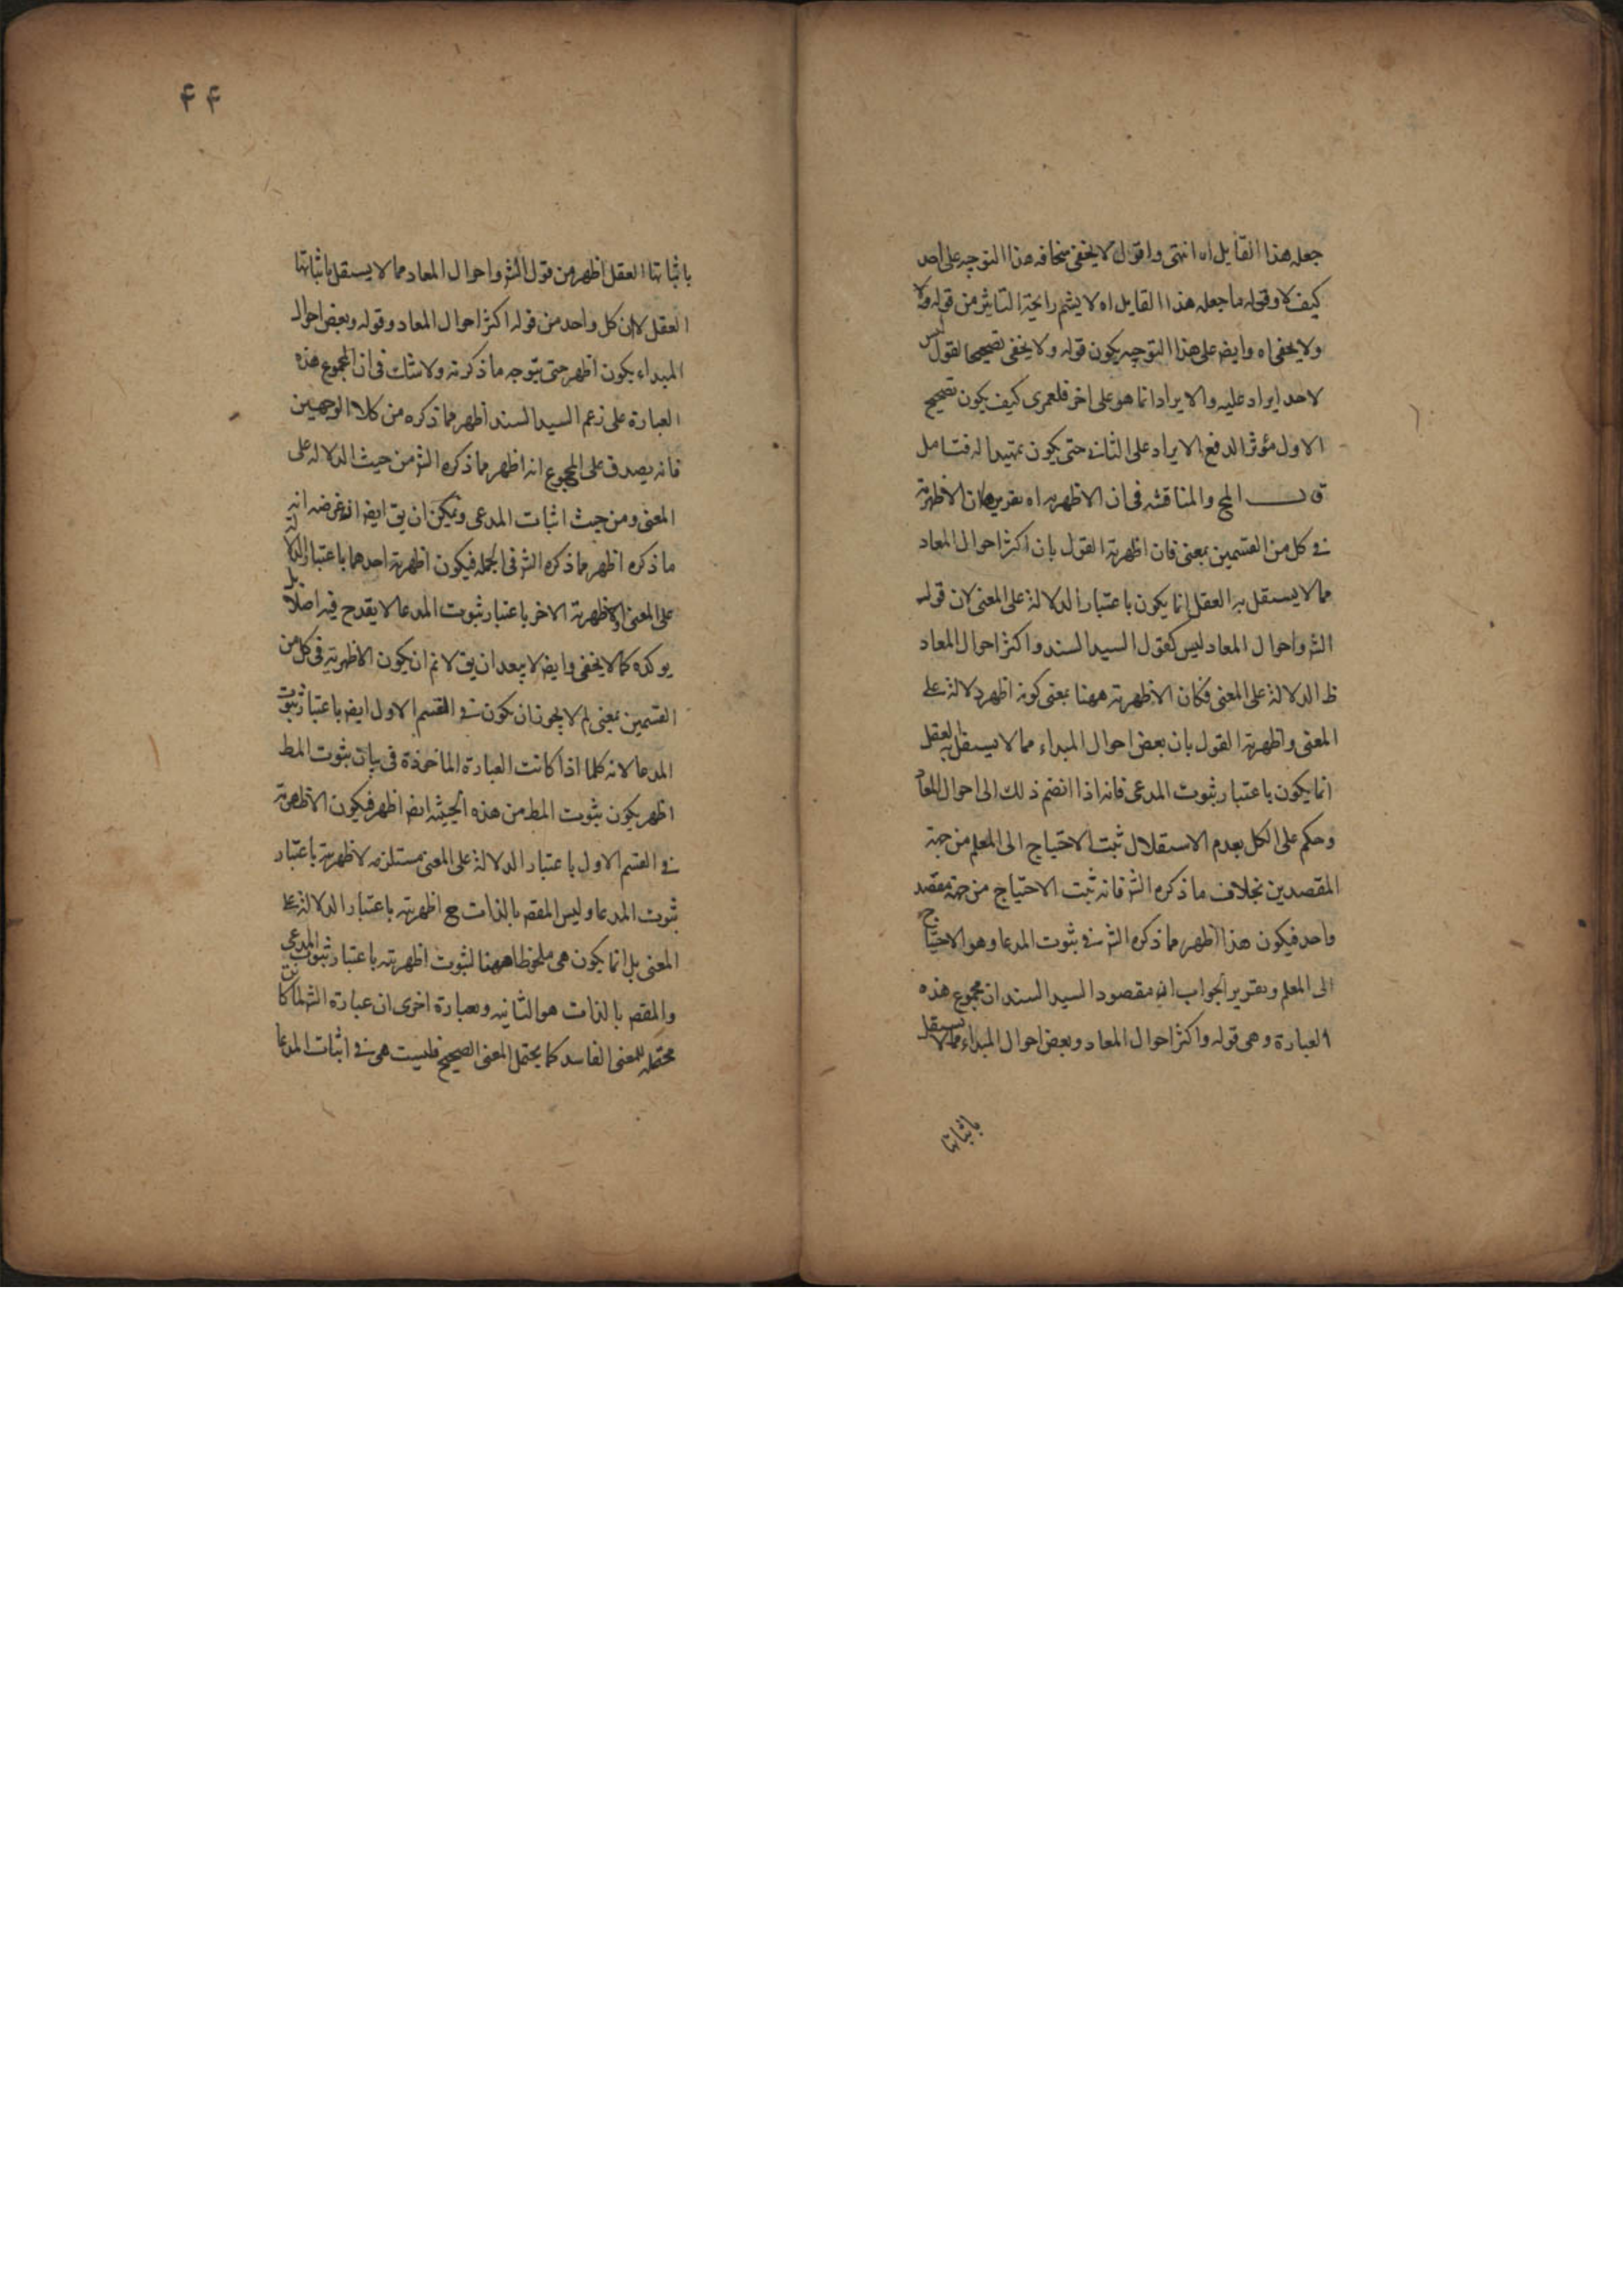 جعله هذا القايل اه انتهى واقول لا يخفى سخافه هذا التوجه على احد
كيف لا وقوله ما جعله هذا القايل اه لا يشم رايحة التاثير من قوله ولا
ولا يخفى اه وايض على هذا التوجيه يكون قوله ولا يخفى تصحيحا لقول ليس
لاحد ايراد عليه والايراد انما هو على اخر فلعمرى كيف يكون تصحيح
الاول مؤثرا لدفع الايراد على الثانى حتى يكون تمهيدا له فتامل
المح والمناقشه فى ان الاظهريه اه تقريرها ان الاظهرية
فى كل من القسمين بمعنى فان اظهرية القول بان اكثر احوال المعاد
مما لا يستقل به العقل انما يكون باعتبار الدلالة على المعنى لان قوله
الش واحوال المعاد ليس كقول السيد السند واكثر احوال المعاد
ظ الدلالة على المعنى فكان الاظهرية ههنا بمعنى كونه اظهر دلالة على
المعنى واظهرية القول بان بعض احوال المبداء مما لا يستقل به العقل
انما يكون باعتبار ثبوت المدعى فانه اذا انضم ذلك الى احوال المعاد
وحكم على الكل بعدم الاستقلال ثبت الاحتياج الى المعلم من جهة
المقصدين بخلاف ما ذكره الش فانه ثبت الاحتياج من جهة مقصد
واحد فيكون هذا اظهر مما ذكره الش فى ثبوت المدعا وهو الاحتياج
الى المعلم وتقرير الجواب ان مقصود السيد السند ان مجموع هذه
العبارة وهى قوله واكثر احوال المعاد وبعض احوال المبداء مما لا يستقل
باثباتها
۴۴
باثباتها العقل اظهر من قول الش واحوال المعاد مما لا يستقل باثباتها
العقل لا ان كل واحد من قوله اكثر احوال المعاد وقوله وبعض احوال
المبداء يكون اظهر حتى يتوجه ما ذكرته ولا شك فى ان المجموع هذه
العبارة على زعم السيد السند اظهر مما ذكره من كلا الوجهين
فانه يصدق على المجموع انه اظهر مما ذكره الش من حيث الدلاله على
المعنى ومن حيث اثبات المدعى ويمكن ان يق ايض ان غرضه انه
ما ذكره اظهر مما ذكره الش فى الجمله فيكون اظهرية احدهما باعتبار الدلالة
على المعنى واظهرية الاخر باعتبار ثبوت المدعا لا يقدح فيه اصلا بل
يوكده كما لا يخفى وايض لا يبعد ان يق لا نم ان يكون الاظهرية فى كل من
القسمين بمعنى لم لا يجوز ان يكون فى القسم الاول ايض باعتبار ثبوت
المدعا لانه كلما اذا كانت العبارة الماخوذة فى بيان ثبوت المط
اظهر يكون ثبوت المط من هذه الحيثيه ايض اظهر فيكون الاظهرية
فى القسم الاول باعتبار الدلالة على المعنى مستلزمه لاظهريته باعتبار
ثبوت المدعا وليس المقصم بالذات ح اظهريته باعتبار الدلالة على
المعنى بل انما يكون هى ملحوظا ههنا لثبوت اظهريته باعتبار ثبوت المدعى
والمقصم بالذات هو الثانيه وبعبارة اخرى ان عبارة الش لما كانت
محتمله للمعنى الفاسد كما يحتمل المعنى الصحيح فليست هى فى اثبات المدعا